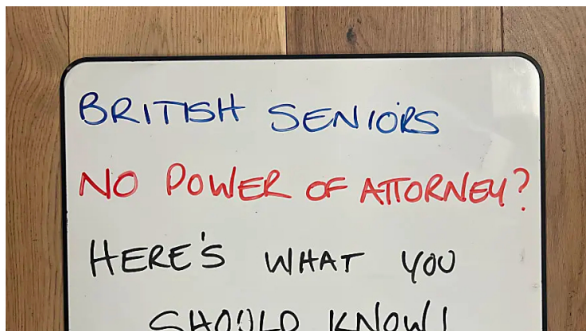 BRITISH SENIORS
NO POWER OF ATTORNEY?
HERE'S WHAT YOU
SHOULD KNOW!